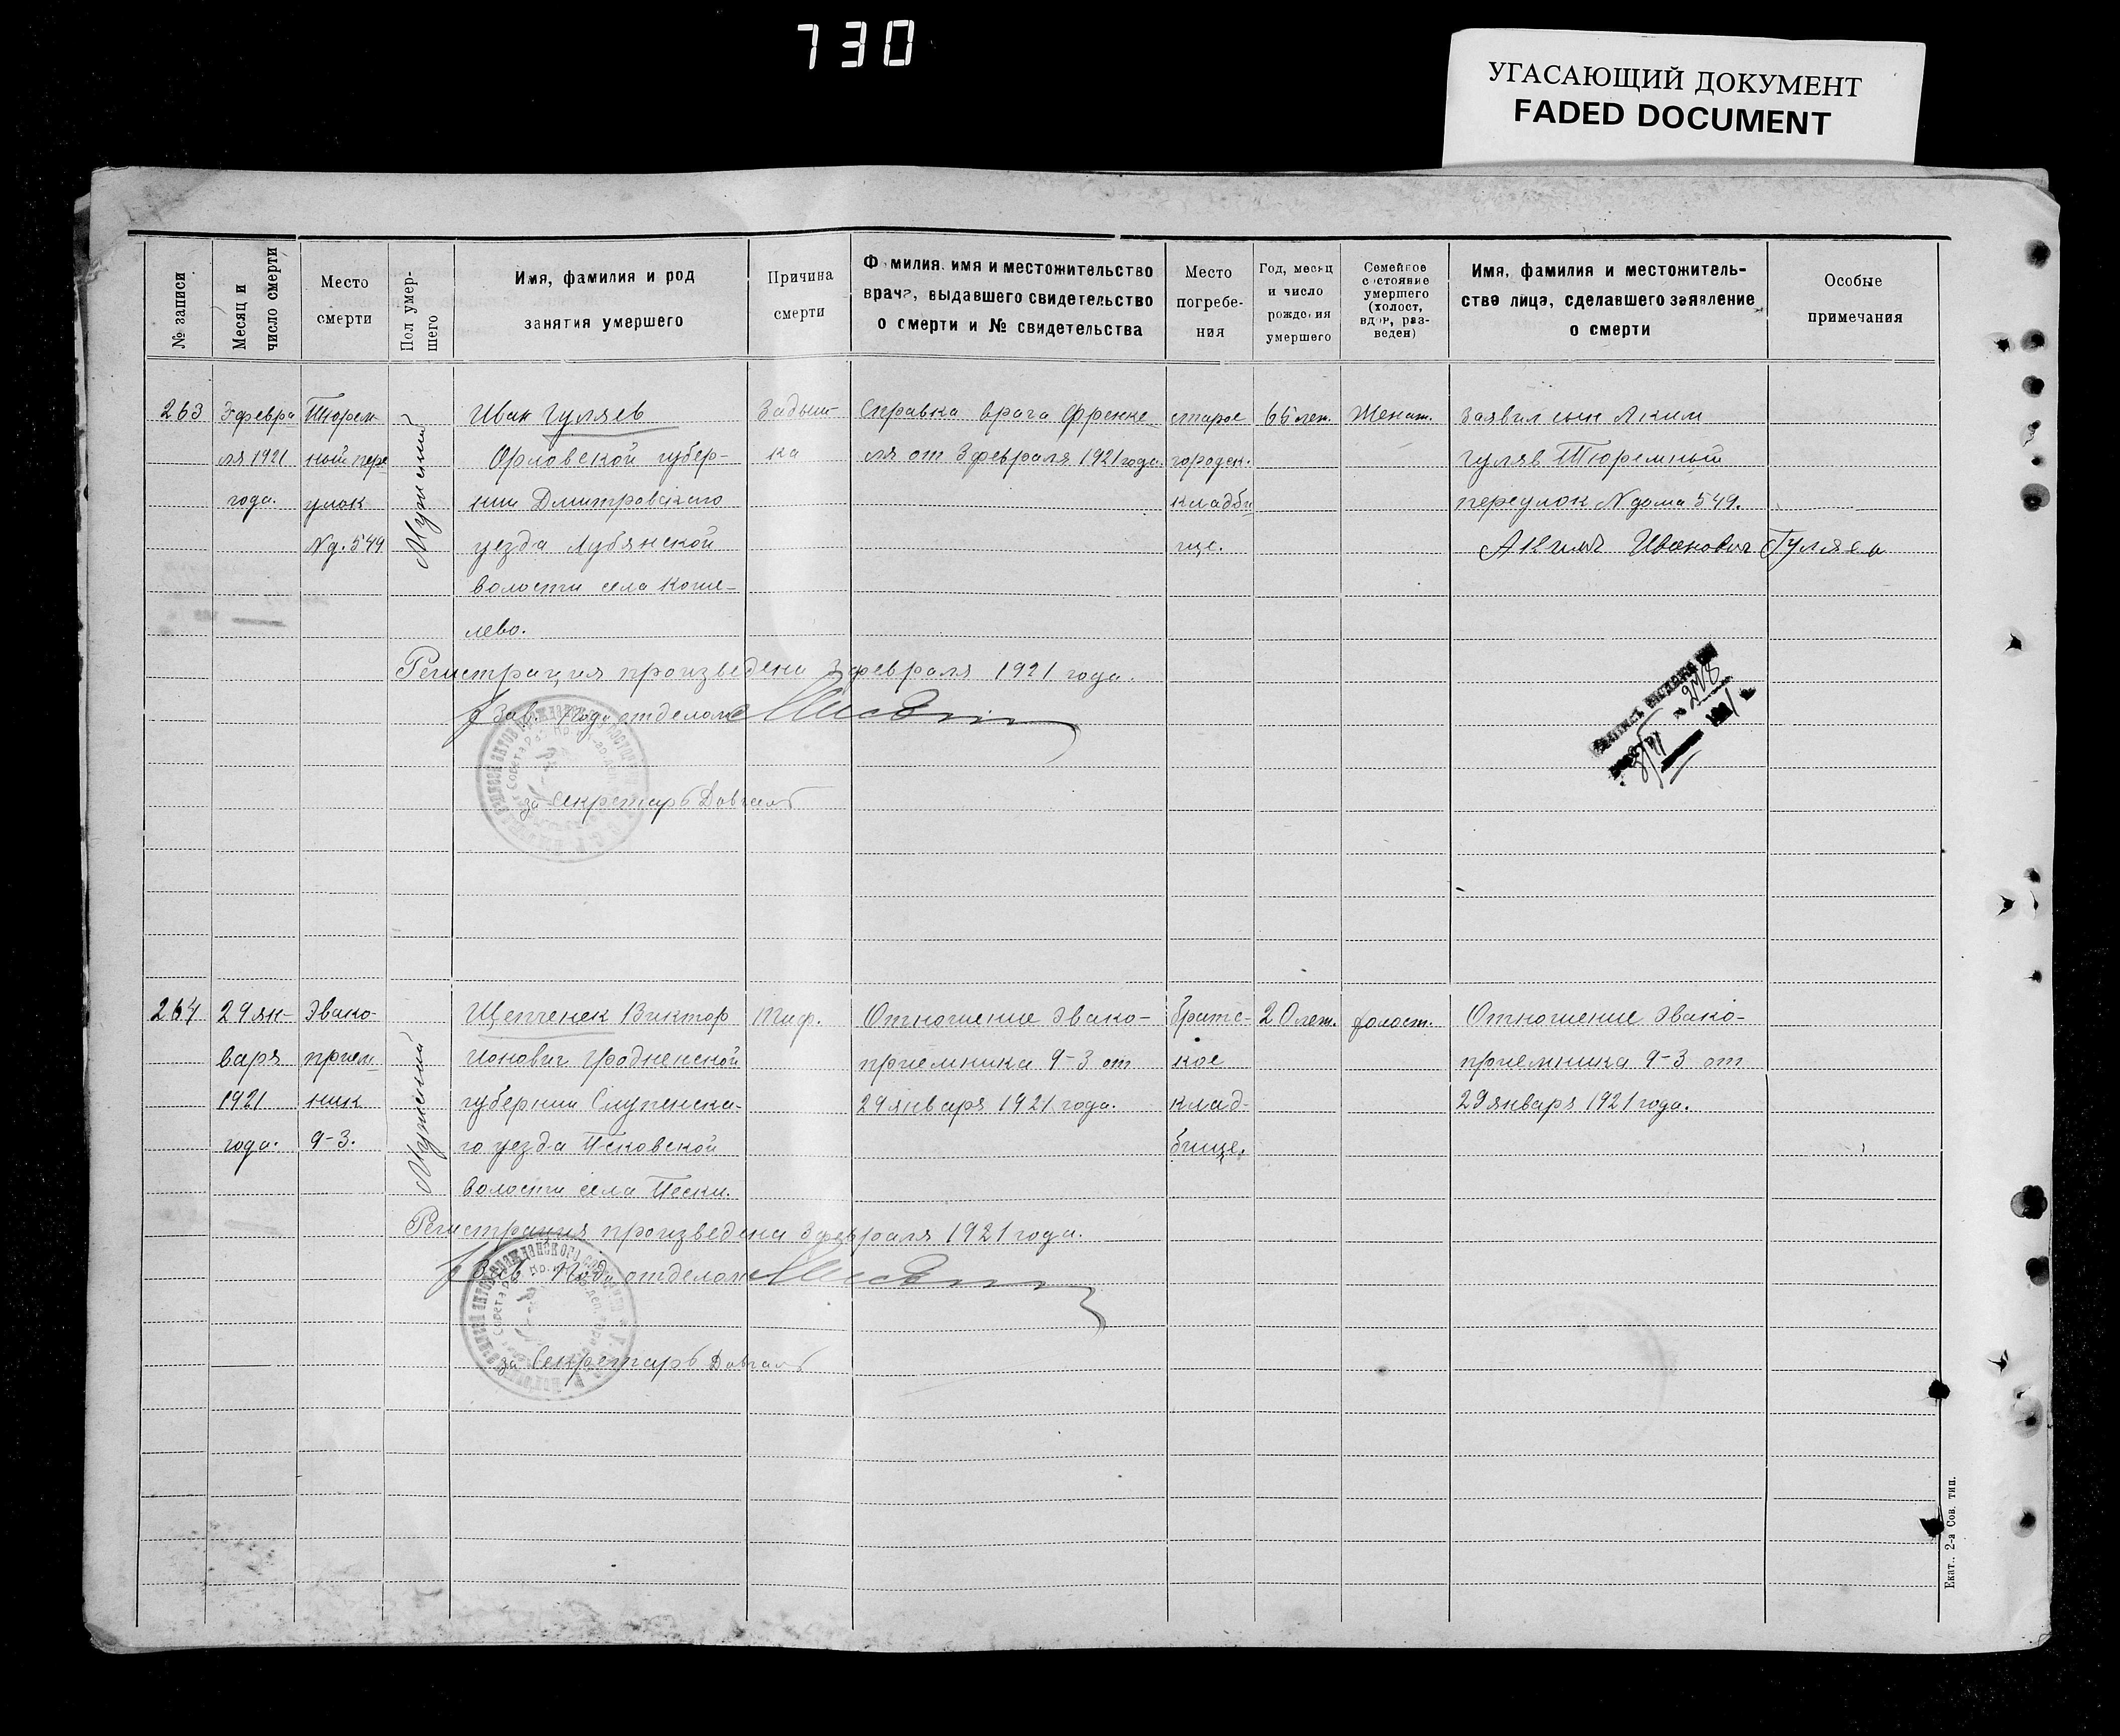 730
УГАСАЮЩИЙ ДОКУМЕНТ
FADED DOCUMENT
№ записи
Месяц и
число смерти
Место
смерти
Пол умер-
шего
Имя, фамилия и род
занятия умершего
Причина
смерти
Фамилия, имя и местожительство
врача, выдавшего свидетельство
о смерти и № свидетельства
Место
погребе-
ния
Год, месяц
и число
рождения
умершего
Семейное
состояние
умершего
(холост,
вдов, раз-
веден)
Имя, фамилия и местожитель-
ство лица, сделавшего заявление
о смерти
Особые
примечания
263
3 февра
ля 1921
года.
Тюрем-
ный пере
улок
N д. 549
Мужской
Иван Гуляев
Орловской губер-
нии Дмитровского
уезда Лубянской
волости села Коше-
лево.
Задыш-
ка
Справка врача Френке
ля от 3 февраля 1921 года.
старое
городск.
кладби
ще.
65 лет.
Женат.
Заявил сын Аким
Гуляв Тюремный
переулок N дома 549.
Акимъ Иванович Гуляев
Регистрация произведена 3 февраля 1921 года.
Зав. Подотделом
за Секретарь Довгаль
264
29 ян-
варя
1921
года.
Эвако-
прием
ник
9-3.
Мужской
Щепченек Виктор
Ионович Гродненской
губернии Слупенска-
го уезда Песковской
волости села Пески.
Тиф.
Отношение Эвако-
приемника 9-3 от
29 января 1921 года.
Братс-
кое
клад-
бище.
20 лет.
холост.
Отношение Эвако-
приемника 9-3 от
29 января 1921 года.
Регистрация произведена 3 февраля 1921 года.
Зав. Подотделом
за Секретарь Довгаль
Екат.. 2-я Сов. тип.